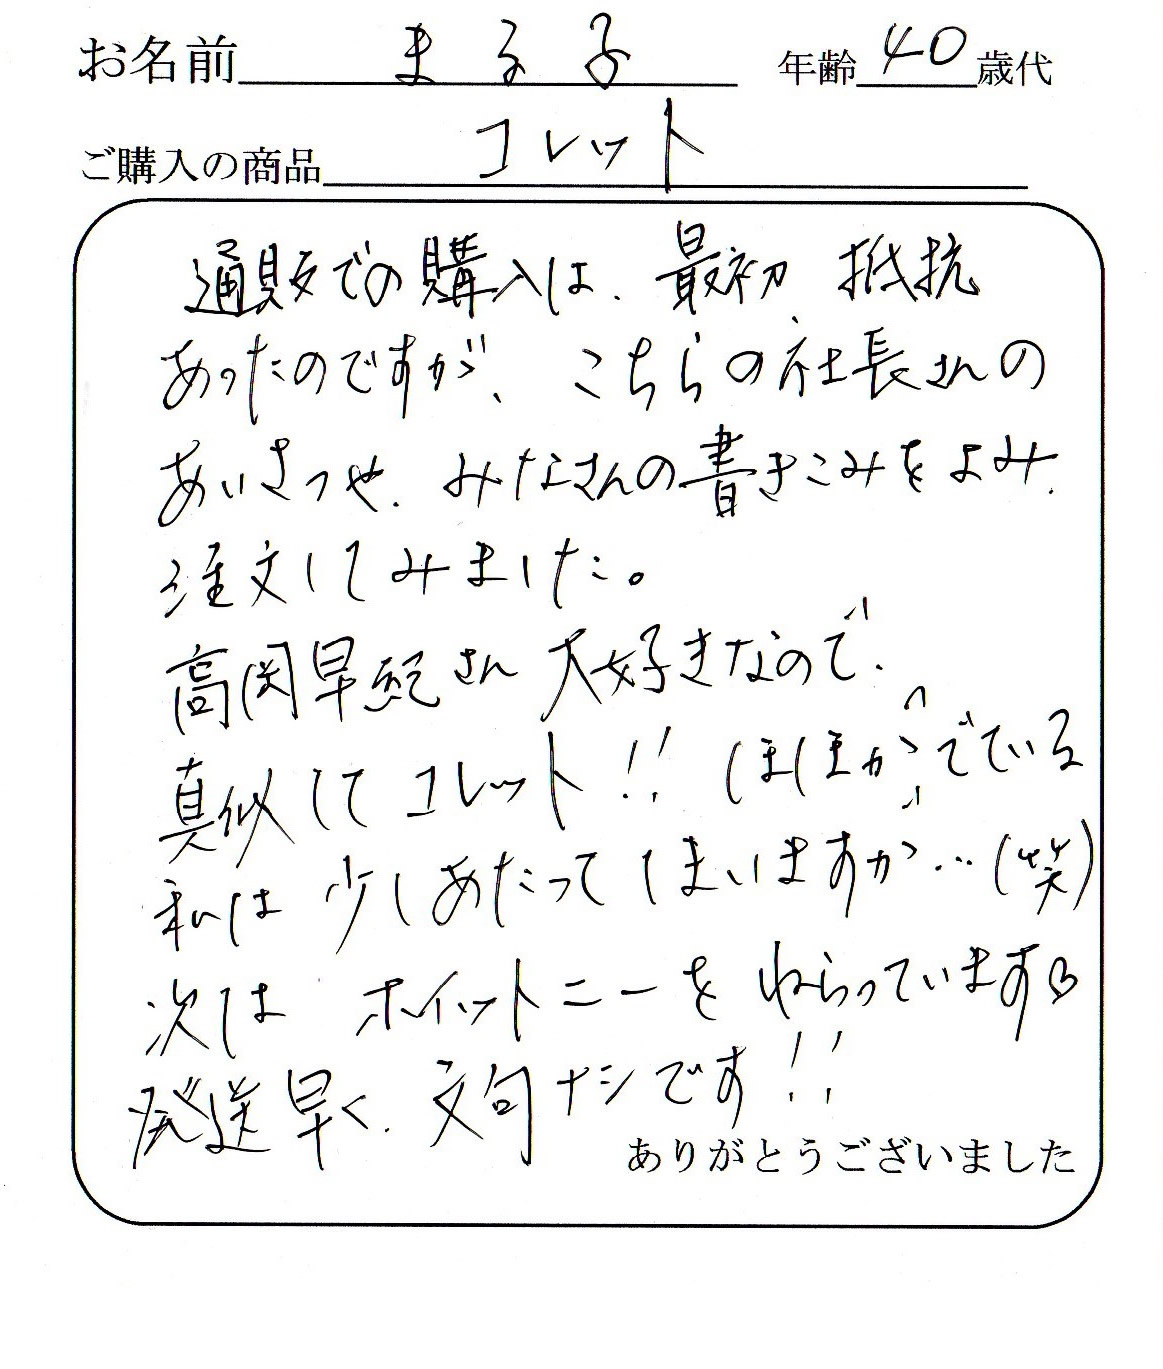 お名前 まる子 年齢 40 歳代
ご購入の商品 コレット
通販での購入は、最初、抵抗
あったのですが、こちらの社長さんの
あいさつや、みなさんの書きこみをよみ、
注文してみました。
高岡早紀さん大好きなので、
真似してコレット!! ほほが〈でている
私は少しあたってしまいますが…(笑)
次は ホイットニーをねらっています♡
発送早く、文句ナシです!!
ありがとうございました